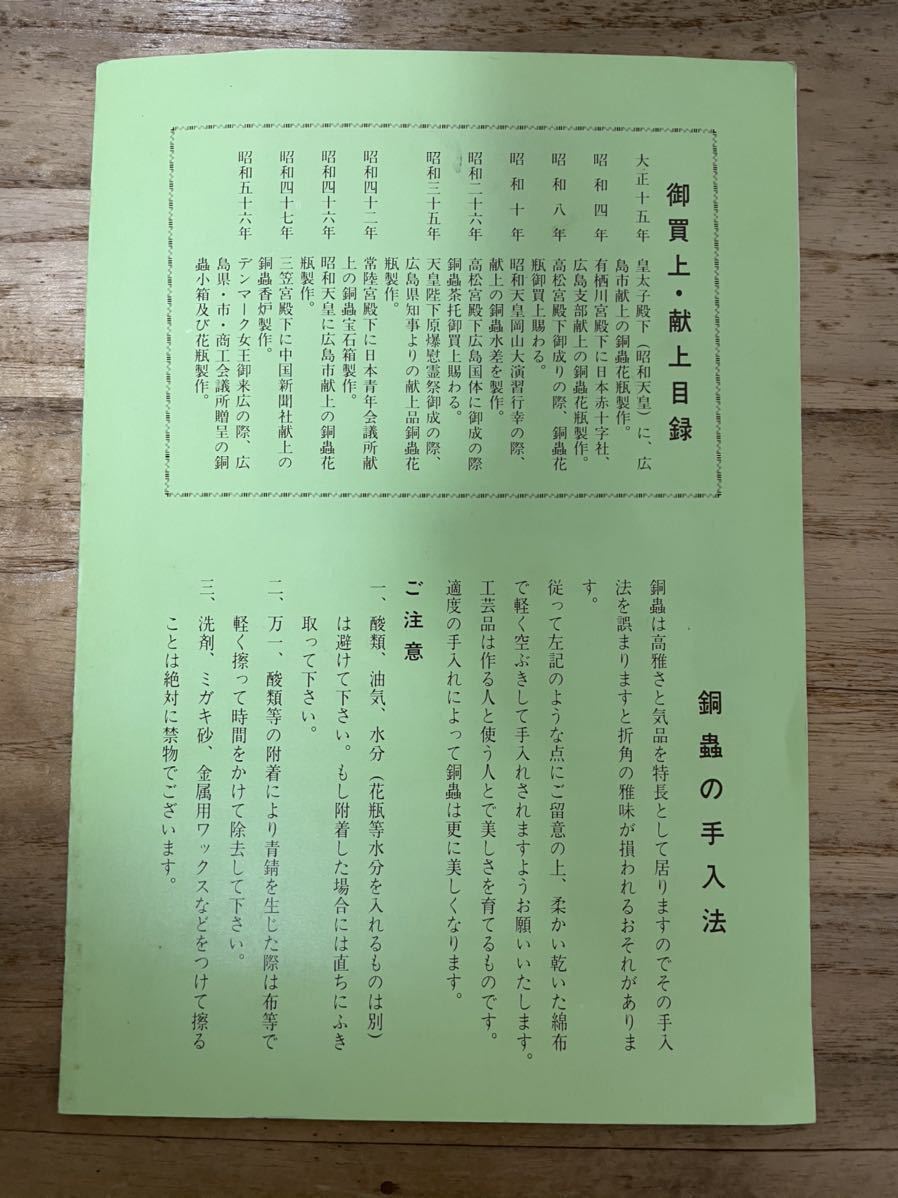 御買上・献上目録
大正十五年　皇太子殿下（昭和天皇）に、広
島市献上の銅蟲花瓶製作。
昭和四年　有栖川宮殿下に日本赤十字社、
広島支部献上の銅蟲花瓶製作。
昭和八年　高松宮殿下御成りの際、銅蟲花
瓶御買上賜わる。
昭和十年　昭和天皇岡山大演習行幸の際、
献上の銅蟲水差を製作。
昭和二十六年　高松宮殿下広島国体に御成の際
銅蟲茶托御買上賜わる。
昭和三十五年　天皇陛下原爆慰霊祭御成の際、
広島県知事よりの献上品銅蟲花
瓶製作。
昭和四十二年　常陸宮殿下に日本青年会議所献
上の銅蟲宝石箱製作。
昭和四十六年　昭和天皇に広島市献上の銅蟲花
瓶製作。
昭和四十七年　三笠宮殿下に中国新聞社献上の
銅蟲香炉製作。
昭和五十六年　デンマーク女王御来広の際、広
島県・市・商工会議所贈呈の銅
蟲小箱及び花瓶製作。
銅蟲の手入法
銅蟲は高雅さと気品を特長として居りますのでその手入
法を誤まりますと折角の雅味が損われるおそれがありま
す。
従って左記のような点にご留意の上、柔かい乾いた綿布
で軽く空ぶきして手入れされますようお願いいたします。
工芸品は作る人と使う人とで美しさを育てるものです。
適度の手入れによって銅蟲は更に美しくなります。
ご注意
一、酸類、油気、水分（花瓶等水分を入れるものは別）
は避けて下さい。もし附着した場合には直ちにふき
取って下さい。
二、万一、酸類等の附着により青錆を生じた際は布等で
軽く擦って時間をかけて除去して下さい。
三、洗剤、ミガキ砂、金属用ワックスなどをつけて擦る
ことは絶対に禁物でございます。